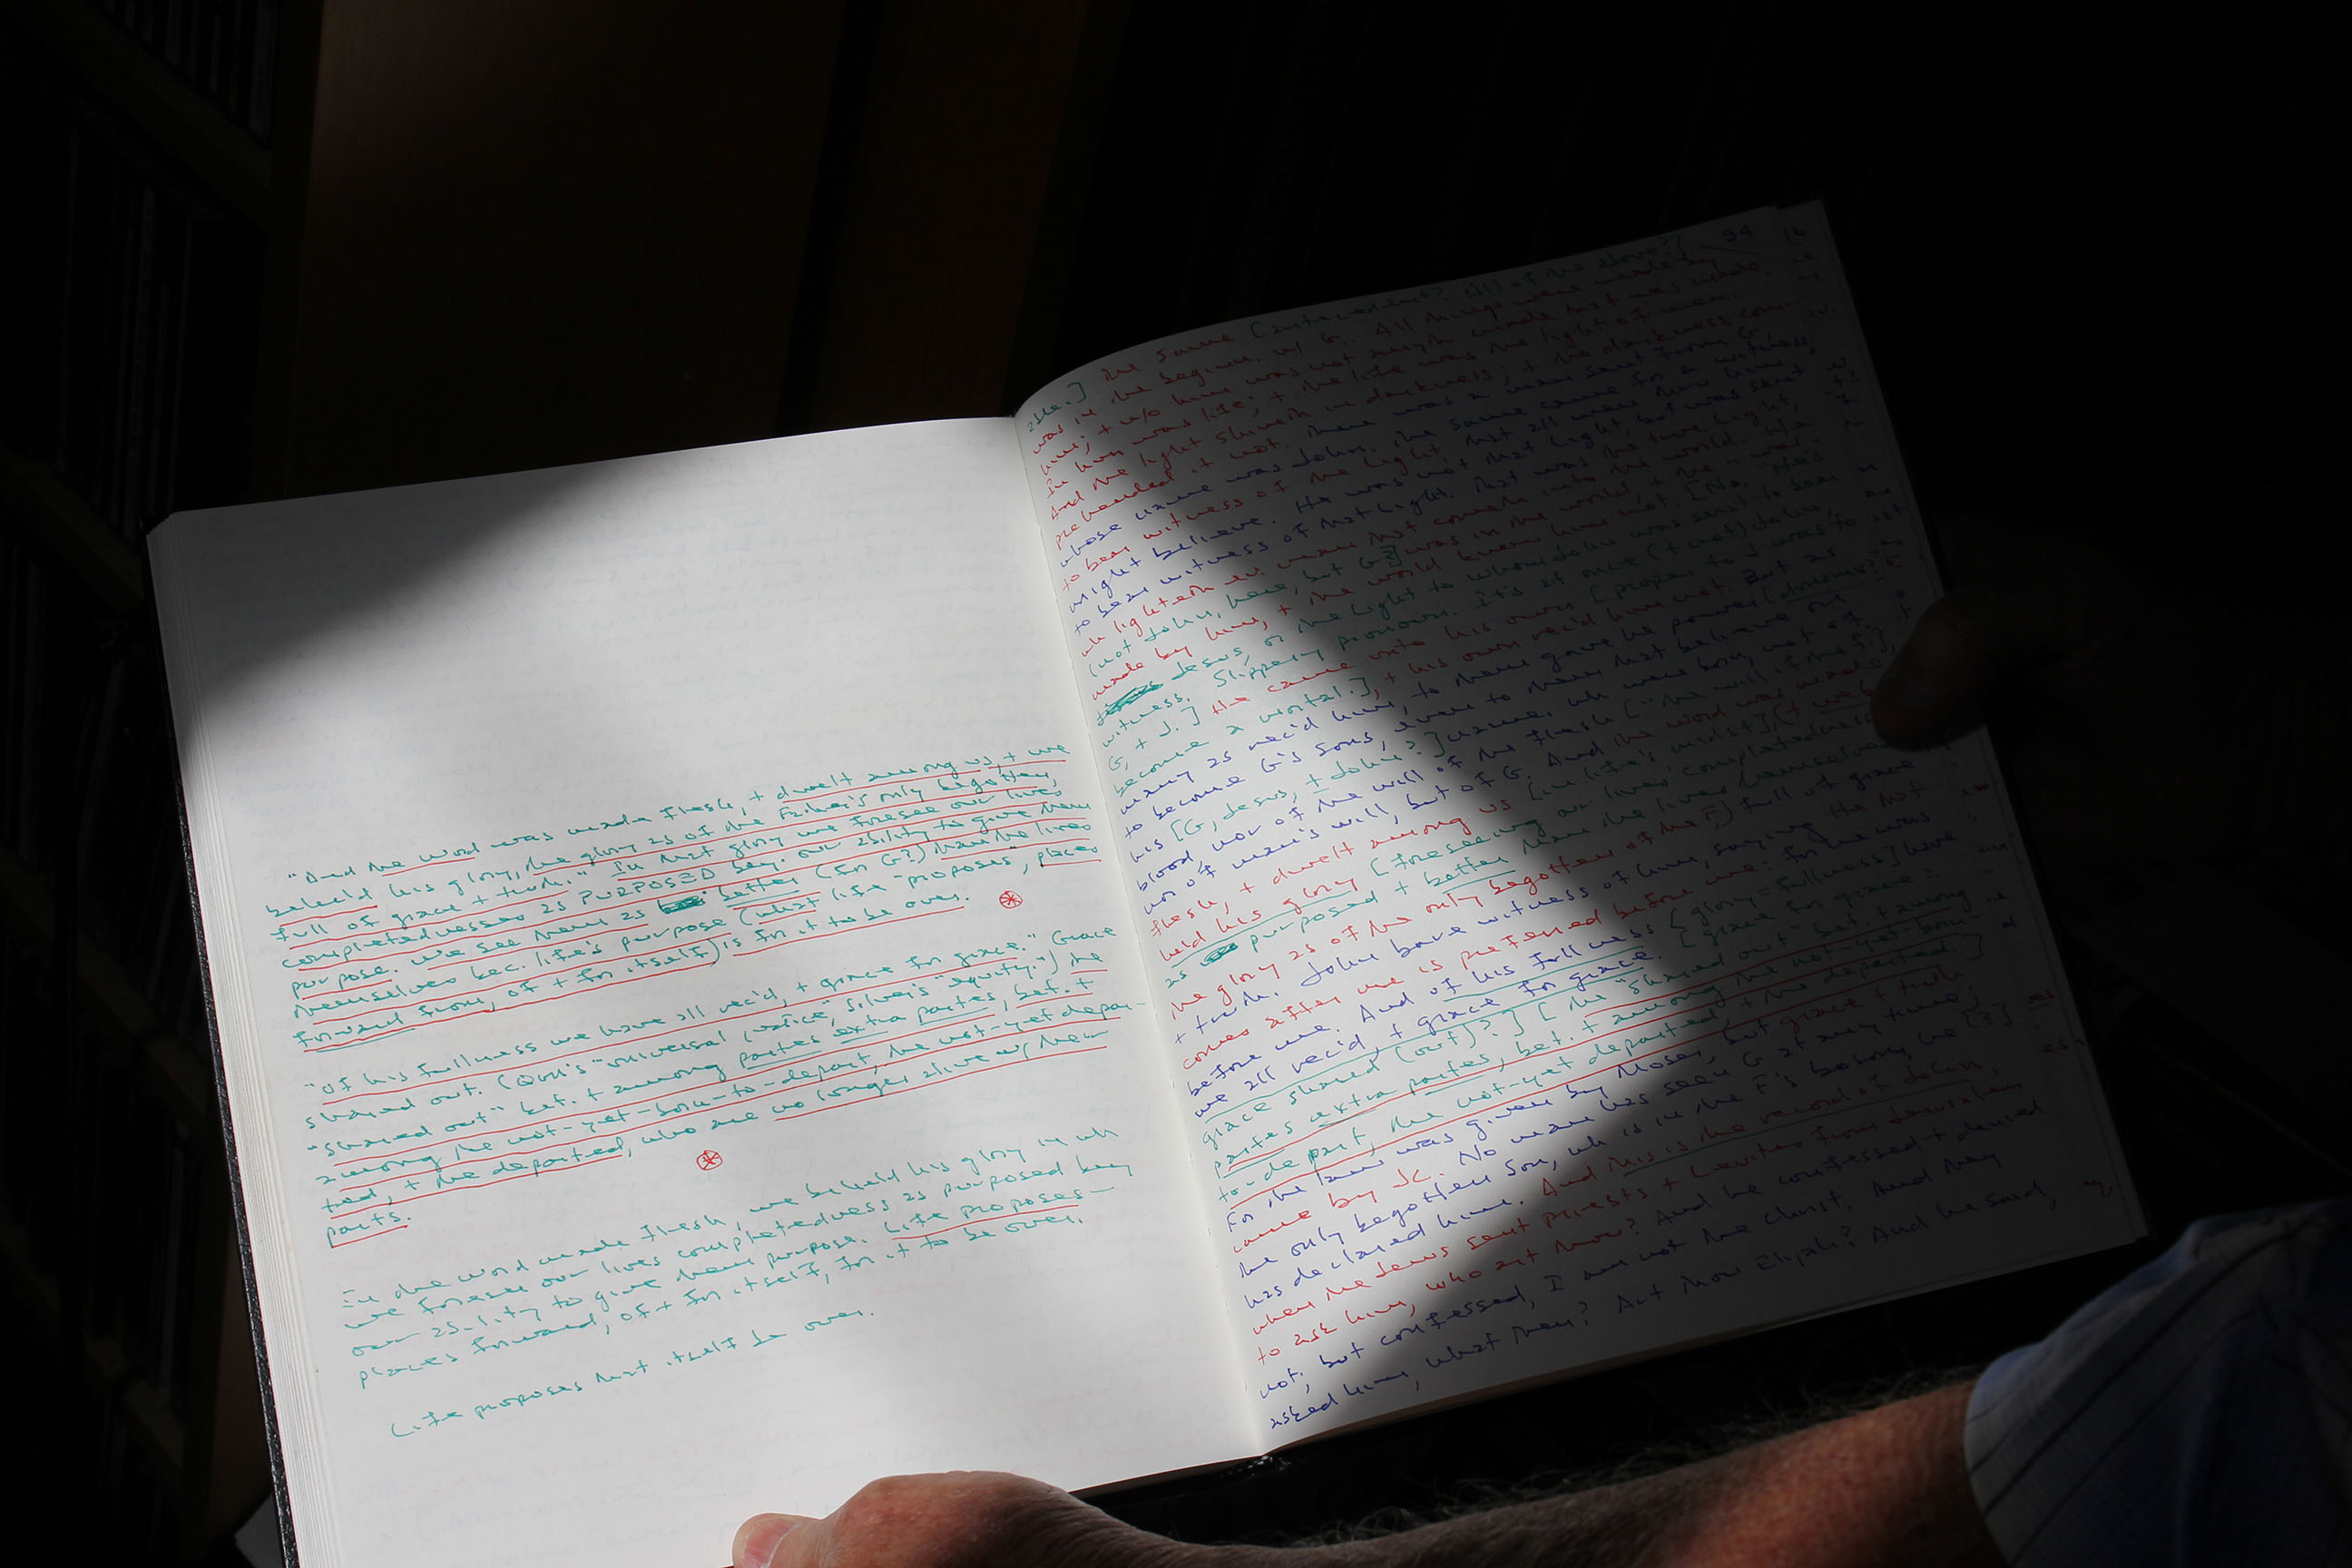 "And the word was made flesh, + dwelt among us, + we
beheld his glory, the glory as of the Father's only begotten,
full of grace + truth." In that glory we foresee our lives
completedness as PURPOSED by our ability to give them
purpose. We see them as better (for G?) than the lives
themselves bec. life's purpose (what life "proposes", places
forward from, of + for itself) is for it to be over.
"Of his fullness we have all rec'd, + grace for grace." Grace
shared out. "universal justice," "equity.") The
"shared out" bet. + among partes extra partes, bet. +
among the not-yet-born-to-depart, the not-yet depar-
ted, + the departed, who are no longer alive w/ their
parts.
In the word made flesh, we beheld his glory in wh
we foresee our lives completedness as purposed by
our ability to give them purpose. Life proposes—
places forward, of + for itself, for it to be over.
Life proposes that itself be over.
able.] The same
was in the beginn. w/ G. All things were made by
him; + w/o him was not anyth. made that was made.
In him was life; + the life was the light of men.
And the light shineth in darkness; + the darkness com-
prehended it not. There was a man sent from G.
whose name was John. The same came for a witness,
to bear witness of the Light, that all men thru him
might believe. He was not that Light, but was sent
to bear witness of that Light. That was the true Light,
wh lighteth ev. man that cometh into the world.
(not John, here, but G.] was in the world, + the world was
made by him, + the world knew him not.
Jesus, or the Light to whom John was sent to bear
witness. Slippery pronoun. It's at once (+ not) John,
G, + J.] He came unto his own [proper to J was to
become a mortal.], + his own rec'd him not. But as
many as rec'd him, to them gave he power
to become G's sons, even to them that believe on
his [G, Jesus, + John?] name. Wh were born, not of
blood, nor of the will of the flesh
nor of man's will, but of G. And the word was made
flesh, + dwelt among us [in life's midst] (+ we be-
held his glory [foreseeing our lives completedness
as purposed + better than the lives themselves]
the glory as of the only begotten of the F,) full of grace
+ truth. John bare witness of him, saying He that
comes after me is preferred before me: for he was
before me. And of his fullness [glory = fullness] have
we all rec'd, + grace for grace. [grace for grace =
grace shared (out)?] [The "shared out" bet. + among
partes extra partes, bet. + among the not-yet-born-
to-depart, the not-yet departed, + the departed.]
For the law was given by Moses, but grace + truth
came by JC. No man has seen G at any time,
the only begotten Son, wh is in the F's bosom, he [?]
has declared him. And this is the record of John,
when the Jews sent priests + Levites from Jerusalem
to ask him, Who art thou? And he confessed + denied
not; but confessed, I am not the Christ. And they
asked him, What then? Art thou Elijah? And he said,